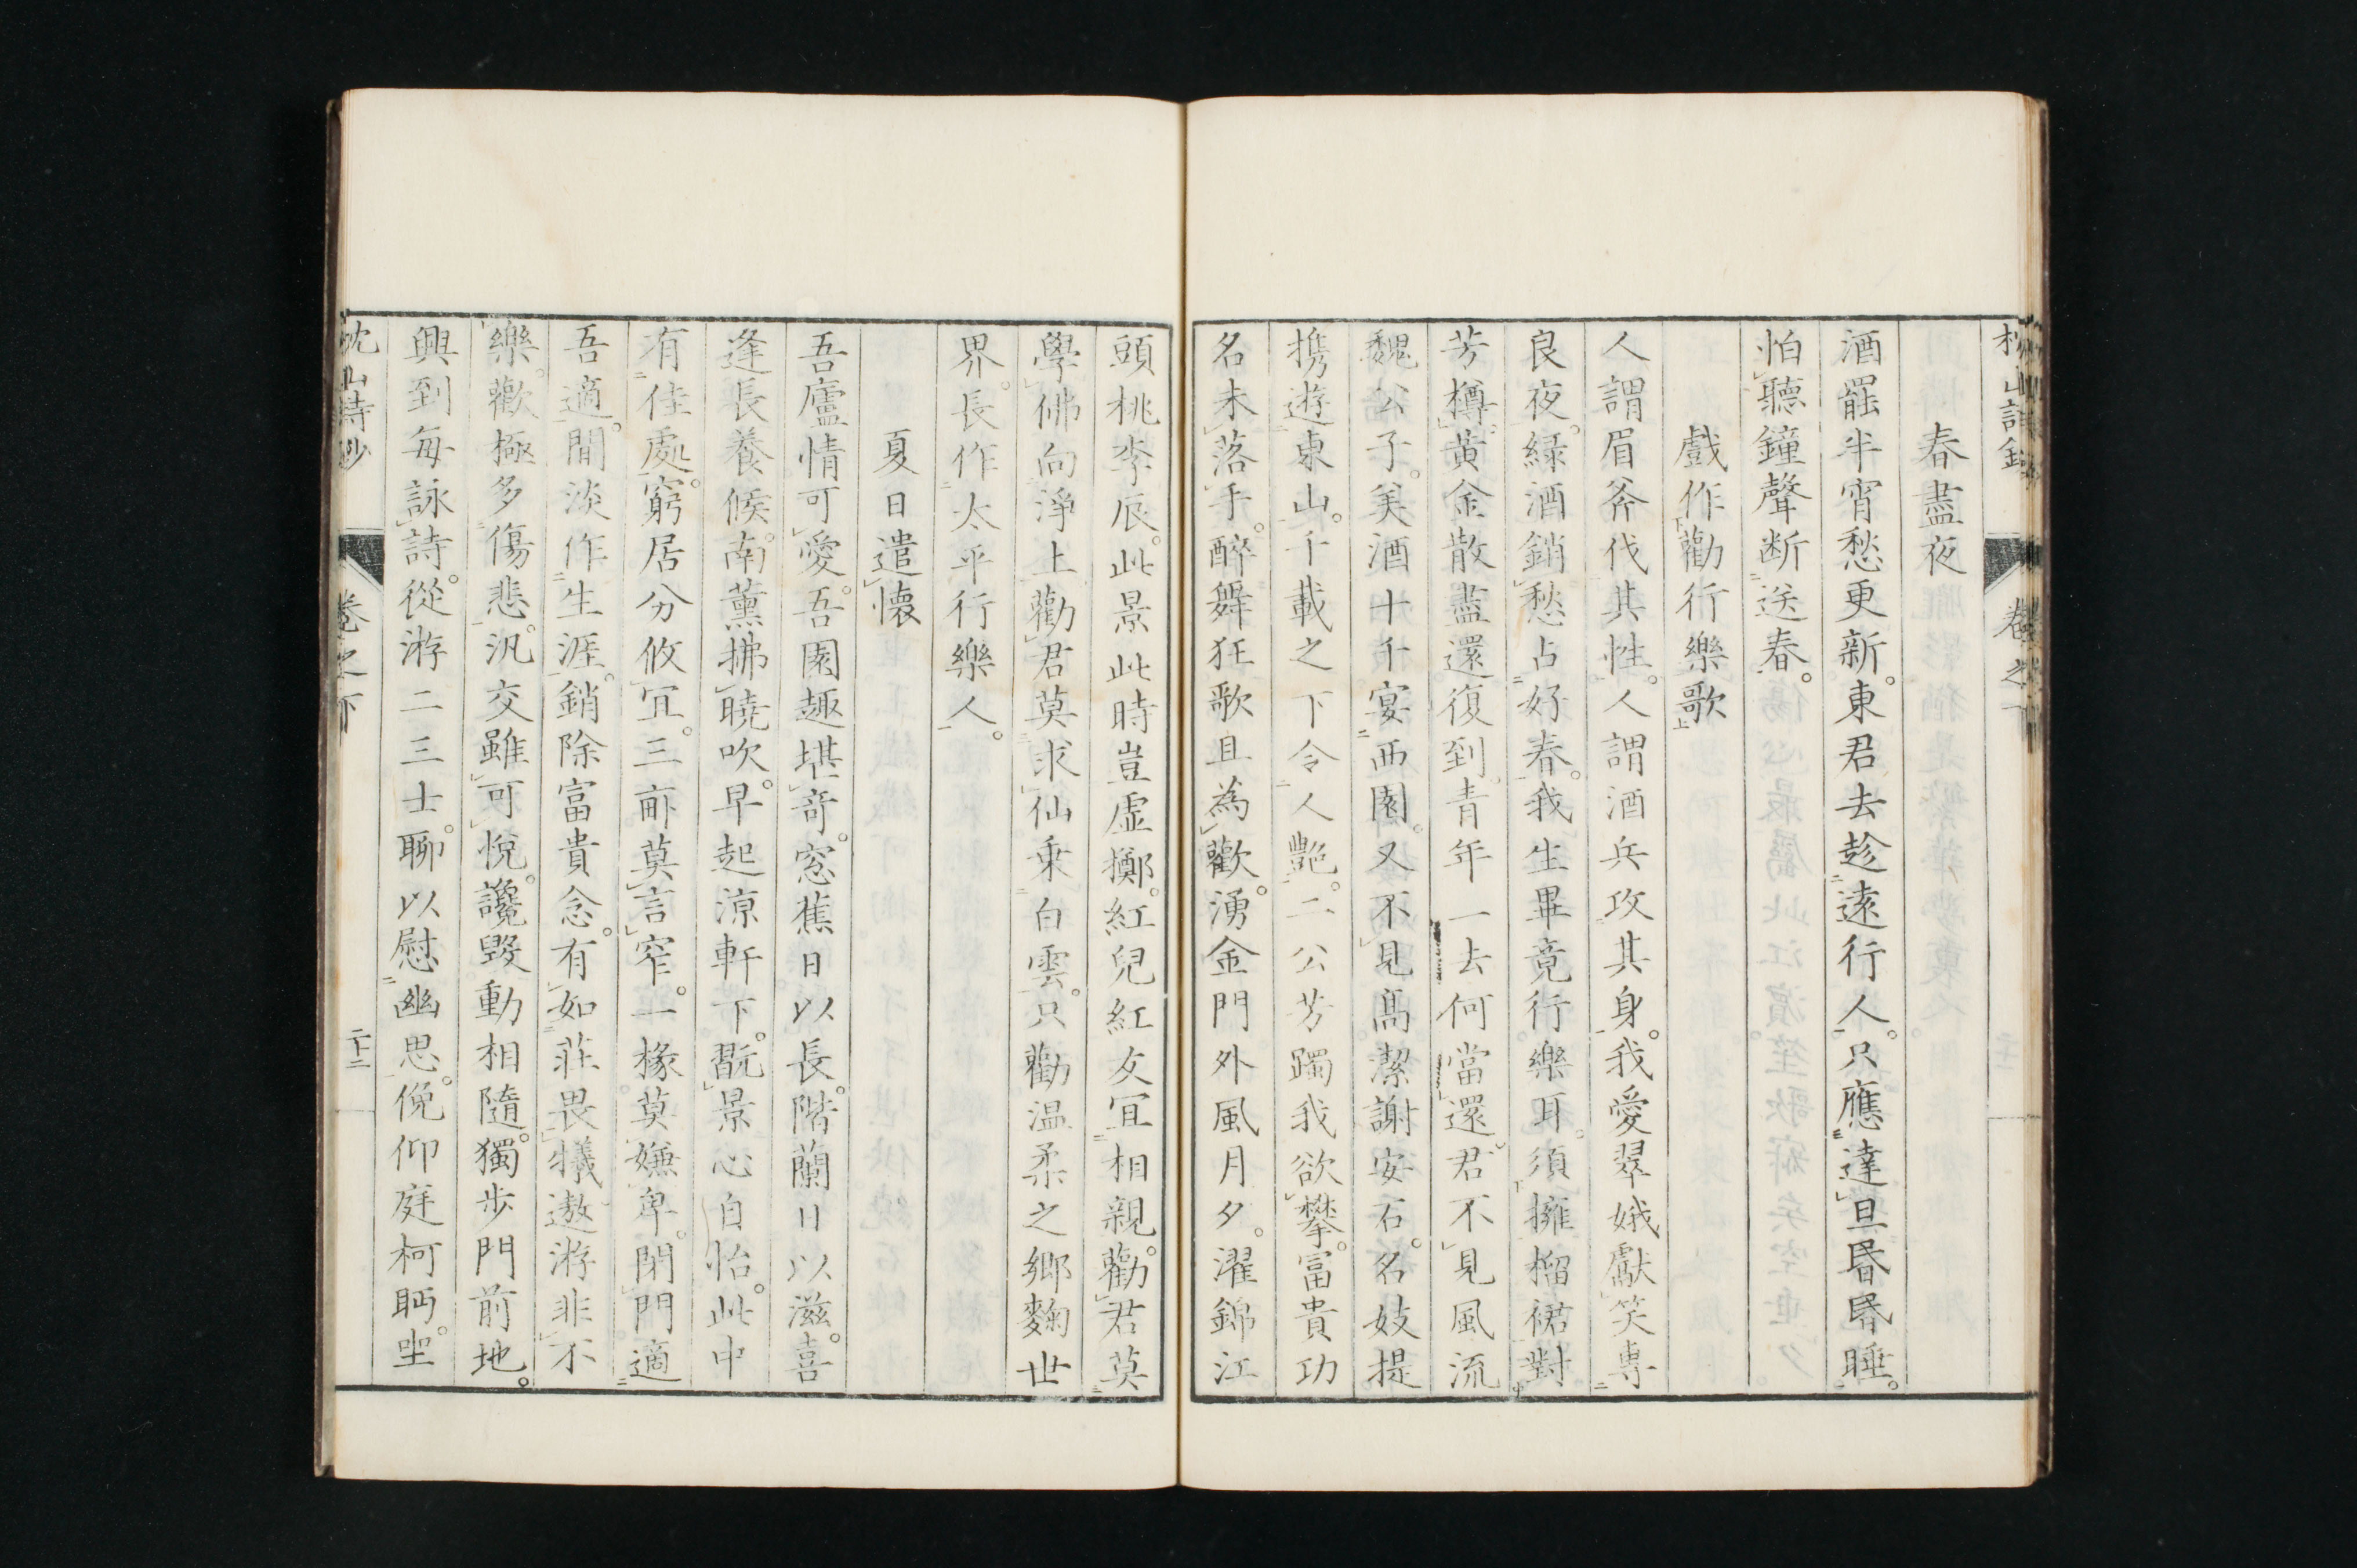 春盡夜
酒罷半宵愁更新。東君去趁遠行人。只應達旦昏昏睡。
怕聽鐘聲断送春。
戲作勸行樂歌
人謂眉斧伐其性。人謂酒兵攻其身。我愛翠娥獻笑專
良夜。緑酒銷愁占好春。我生畢竟行樂耳。須擁榴裙對
芳樽。黄金散盡還復到。青年一去何當還。君不見風流
魏公子。美酒十千宴西園。又不見髙潔謝安石。名妓提
携遊東山。千載之下令人艷。二公芳躅我欲攀。富貴功
名未落手。醉舞狂歌且為歡。湧金門外風月夕。濯錦江
頭桃李辰。此景此時豈虚擲。紅兒紅女宜相親。勸君莫
學佛向淨土。勸君莫求仙乗白雲。只勸温柔之郷麴世
界。長作太平行樂人。
夏日遣懷
吾廬情可愛。吾園趣堪竒。窓蕉日以長。階蘭日以滋。喜
逢長養候。南薫拂曉吹。早起涼軒下。翫景心自怡。此中
有佳處。窮居分攸宜。三畝莫言窄。一椽莫嫌卑。閉門適
吾適。閒淡作生涯。銷除富貴念。有如莊畏犧。遨游非不
樂。歡極多傷悲。汎交雖可悅。讒毀動相隨。獨歩門前地。
興到毎詠詩。從游二三士。聊以慰幽思。俛仰庭柯眄。坐
枕山詩鈔 卷之下 二十二